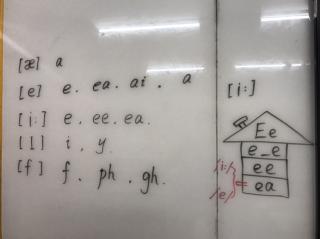 [æ] a
[e] e. ea. ai. a
[i:] e. ee. ea.
[I] i, y.
[f] f. ph. gh.
[i:]
Ee
e_e
ee
ea
/i:/
/e/